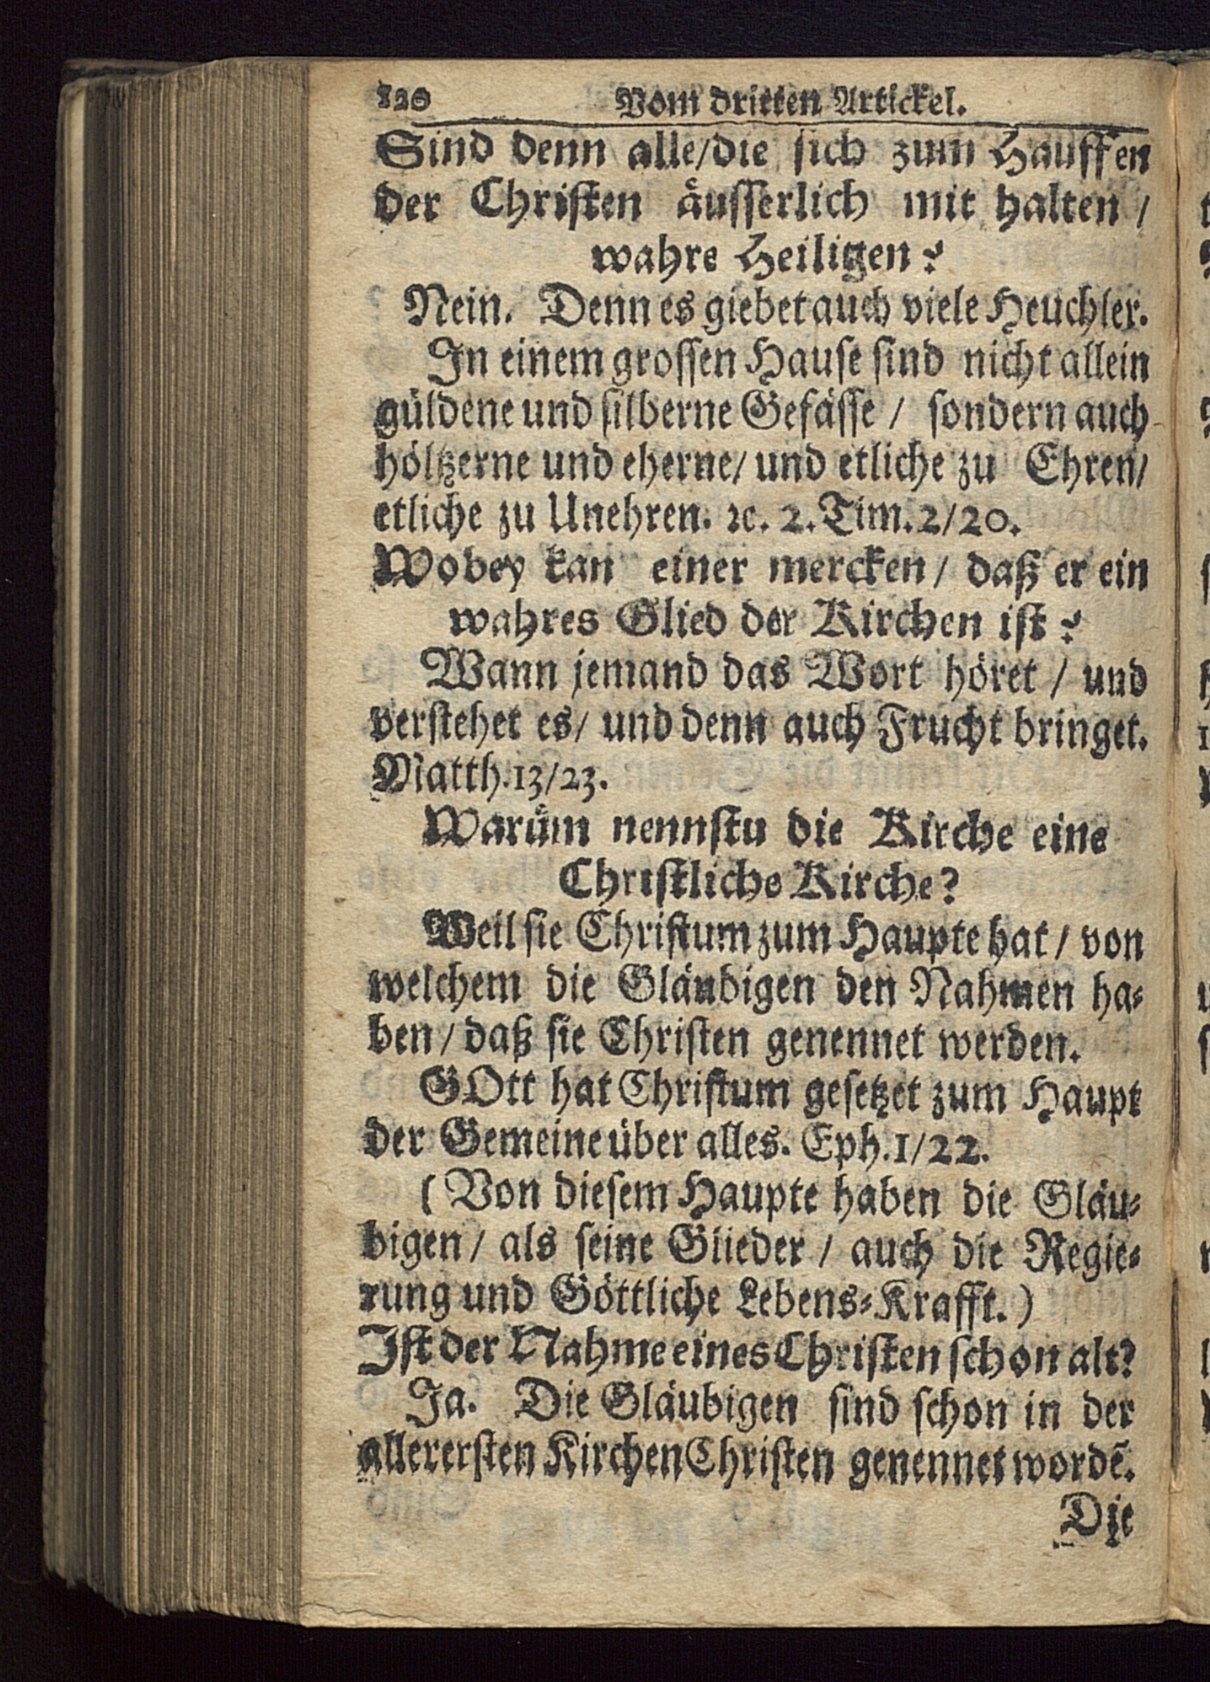 120 Vom dritten Artickel.
Sind denn alle/die sich zum Hauffen
der Christen äusserlich mit halten /
wahre Heiligen?
Nein. Denn es giebet auch viele Heuchler.
In einem grossen Hause sind nicht allein
güldene und silberne Gefässe / sondern auch
höltzerne und eherne/ und etliche zu Ehren/
etliche zu Unehren. ꝛc. 2. Tim. 2/20.
Wobey kan einer mercken / daß er ein
wahres Glied der Kirchen ist?
Wann jemand das Wort höret / und
verstehet es/ und denn auch Frucht bringet.
Matth. 13/23.
Warüm nennstu die Kirche eine
Christliche Kirche?
Weil sie Christum zum Haupte hat / von
welchem die Gläubigen den Nahmen ha-
ben / daß sie Christen genennet werden.
GOtt hat Christum gesetzet zum Haupt
der Gemeine über alles. Eph. 1/22.
( Von diesem Haupte haben die Gläu-
bigen / als seine Glieder / auch die Regie-
rung und Göttliche Lebens-Krafft. )
Ist der Nahme eines Christen schon alt?
Ja. Die Gläubigen sind schon in der
allerersten Kirchen Christen genennet wordẽ.
Die